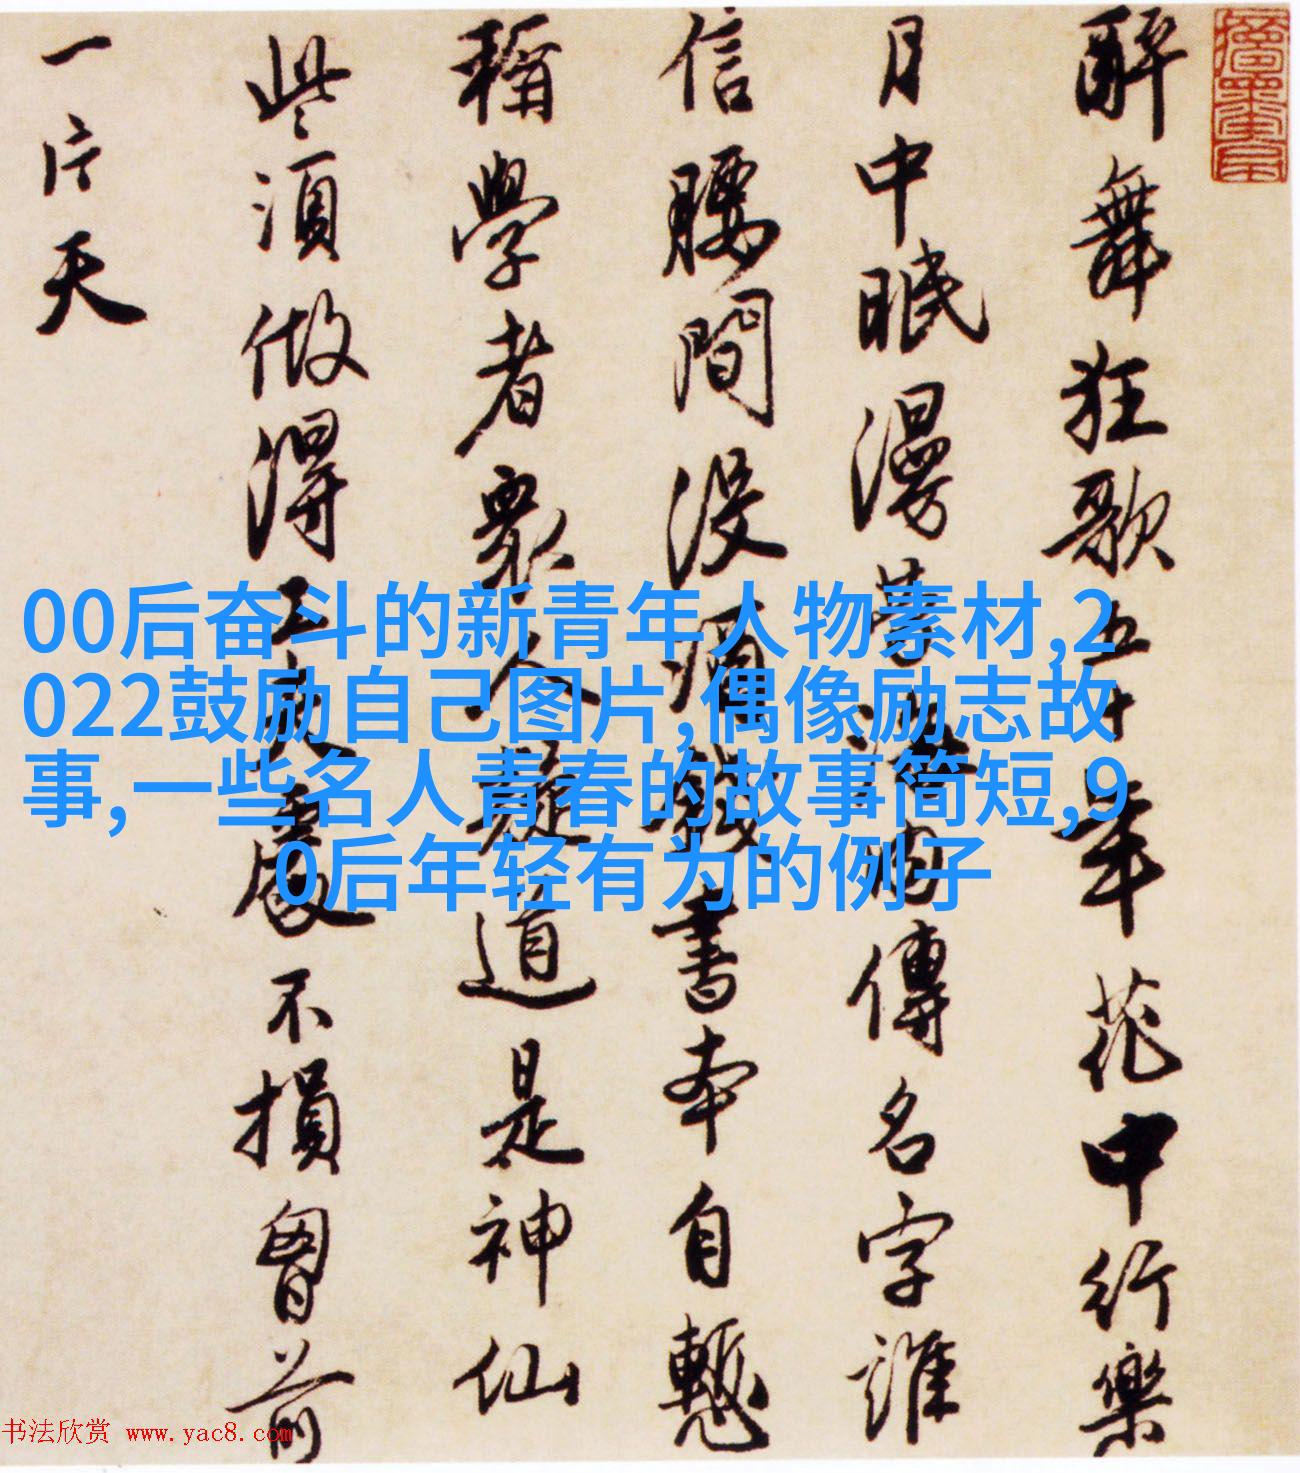 醉舞狂歌五十年花中行樂
月中眠漫勞海內傳名字誰
信腰間沒酒錢書本自慙
稱學者眾人疑道是神仙
些須做得工夫處不損胷前
一片天
00后奋斗的新青年人物素材,2
022鼓励自己图片,偶像励志故
事,一些名人青春的故事简短,9
0后年轻有为的例子
书法欣赏 www.yac8.com